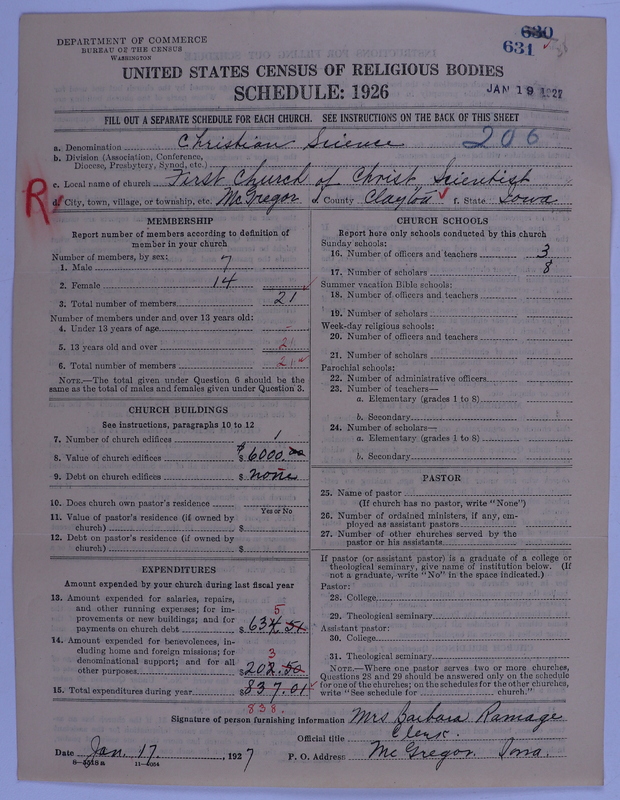 DEPARTMENT OF COMMERCE
BUREAU OF THE CENSUS
WASHINGTON
630
631
UNITED STATES CENSUS OF RELIGIOUS BODIES
SCHEDULE: 1926
JAN 19 1927
FILL OUT A SEPARATE SCHEDULE FOR EACH CHURCH. SEE INSTRUCTIONS ON THE BACK OF THIS SHEET
a. Denomination Christian Science 206
b. Division (Association, Conference, Diocese, Presbytery, Synod, etc.)
c. Local name of church First Church of Christ Scientist
R
d. City, town, village, or township, etc. McGregor County Clayton f. State Iowa
MEMBERSHIP
Report number of members according to definition of
member in your church
Number of members, by sex:
1. Male 7
2. Female 14
3. Total number of members 21
Number of members under and over 13 years old:
4. Under 13 years of age -
5. 13 years old and over 21
6. Total number of members 21
NOTE.—The total given under Question 6 should be the
same as the total of males and females given under Question 3.
CHURCH BUILDINGS
See instructions, paragraphs 10 to 12
7. Number of church edifices 1
8. Value of church edifices $ 6000.00
9. Debt on church edifices $ none
10. Does church own pastor's residence
Yes or No
11. Value of pastor's residence (if owned by
church) $
12. Debt on pastor's residence (if owned by
church) $
EXPENDITURES
Amount expended by your church during last fiscal year
13. Amount expended for salaries, repairs,
and other running expenses; for im-
provements or new buildings; and for
payments on church debt $ 634.51
5
14. Amount expended for benevolences, in-
cluding home and foreign missions; for
denominational support; and for all
other purposes $ 202.50
3
15. Total expenditures during year $ 837.01
838.
CHURCH SCHOOLS
Report here only schools conducted by this church
Sunday schools:
16. Number of officers and teachers 3
17. Number of scholars 8
Summer vacation Bible schools:
18. Number of officers and teachers
19. Number of scholars
Week-day religious schools:
20. Number of officers and teachers
21. Number of scholars
Parochial schools:
22. Number of administrative officers
23. Number of teachers—
a. Elementary (grades 1 to 8)
b. Secondary
24. Number of scholars—
a. Elementary (grades 1 to 8)
b. Secondary
PASTOR
25. Name of pastor
(If church has no pastor, write "None")
26. Number of ordained ministers, if any, em-
ployed as assistant pastors
27. Number of other churches served by the
pastor or his assistants
If pastor (or assistant pastor) is a graduate of a college or
theological seminary, give name of institution below. (If
not a graduate, write "No" in the space indicated.)
Pastor:
28. College
29. Theological seminary
Assistant pastor:
30. College
31. Theological seminary
NOTE.—Where one pastor serves two or more churches,
Questions 28 and 29 should be answered only on the schedule
for one of the churches; on the schedules for the other churches,
write "See schedule for church."
Signature of person furnishing information Mrs Barbara Ramage
Official title Clerk.
Date Jan. 17, 1927 P. O. Address McGregor Iowa.